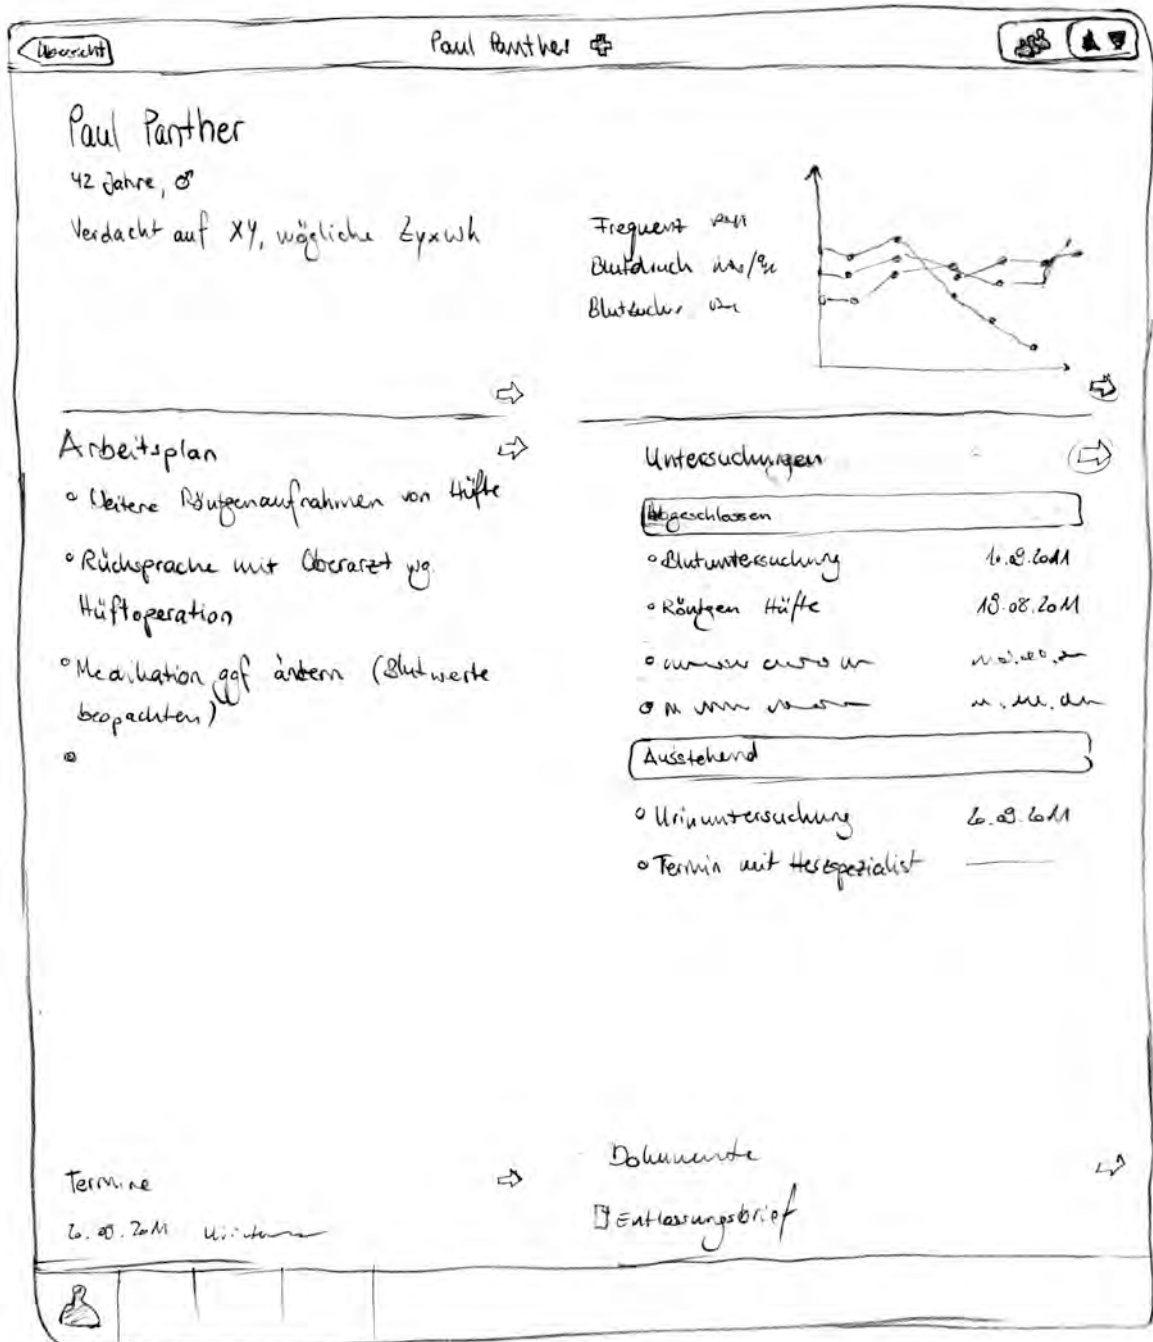 Übersicht
Paul Panther
Paul Panther
42 Jahre, ♂
Verdacht auf XY, mögliche Zyxwh
Frequenz
Blutdruck
Blutzucker
Arbeitsplan
Weitere Röntgenaufnahmen von Hüfte
Rücksprache mit Oberarzt wg.
Hüftoperation
Medikation ggf ändern (Blutwerte
beopachten)
Untersuchungen
Abgeschlossen
Blutuntersuchung
Röntgen Hüfte 19.08.2011
Ausstehend
Urinuntersuchung
Termin mit Herzspezialist
Termine
Dokumente
Entlassungsbrief